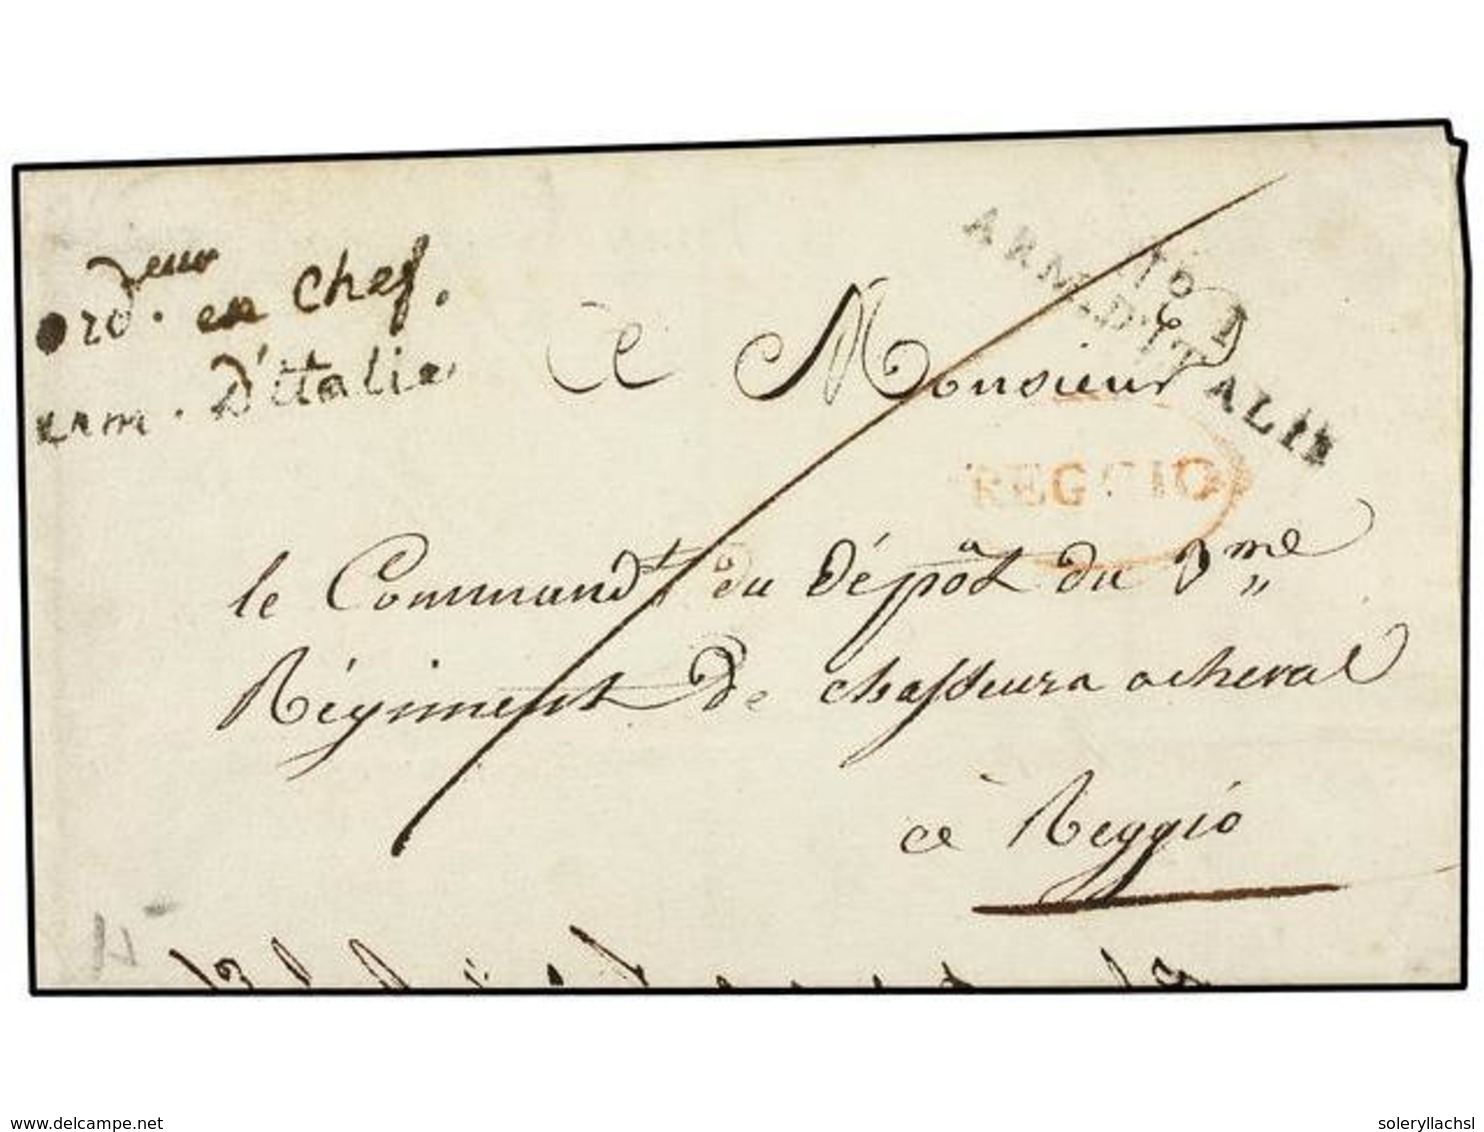 ord.deur en chef.
arm. d'italie
A Monsieur
No 1
ARM. D'ITALIE
REGGIO
le Commandt du Dépôt du 9me
Régiment de chasseurs a cheval
à Reggio
www.delcampe.net
soleryllachsl